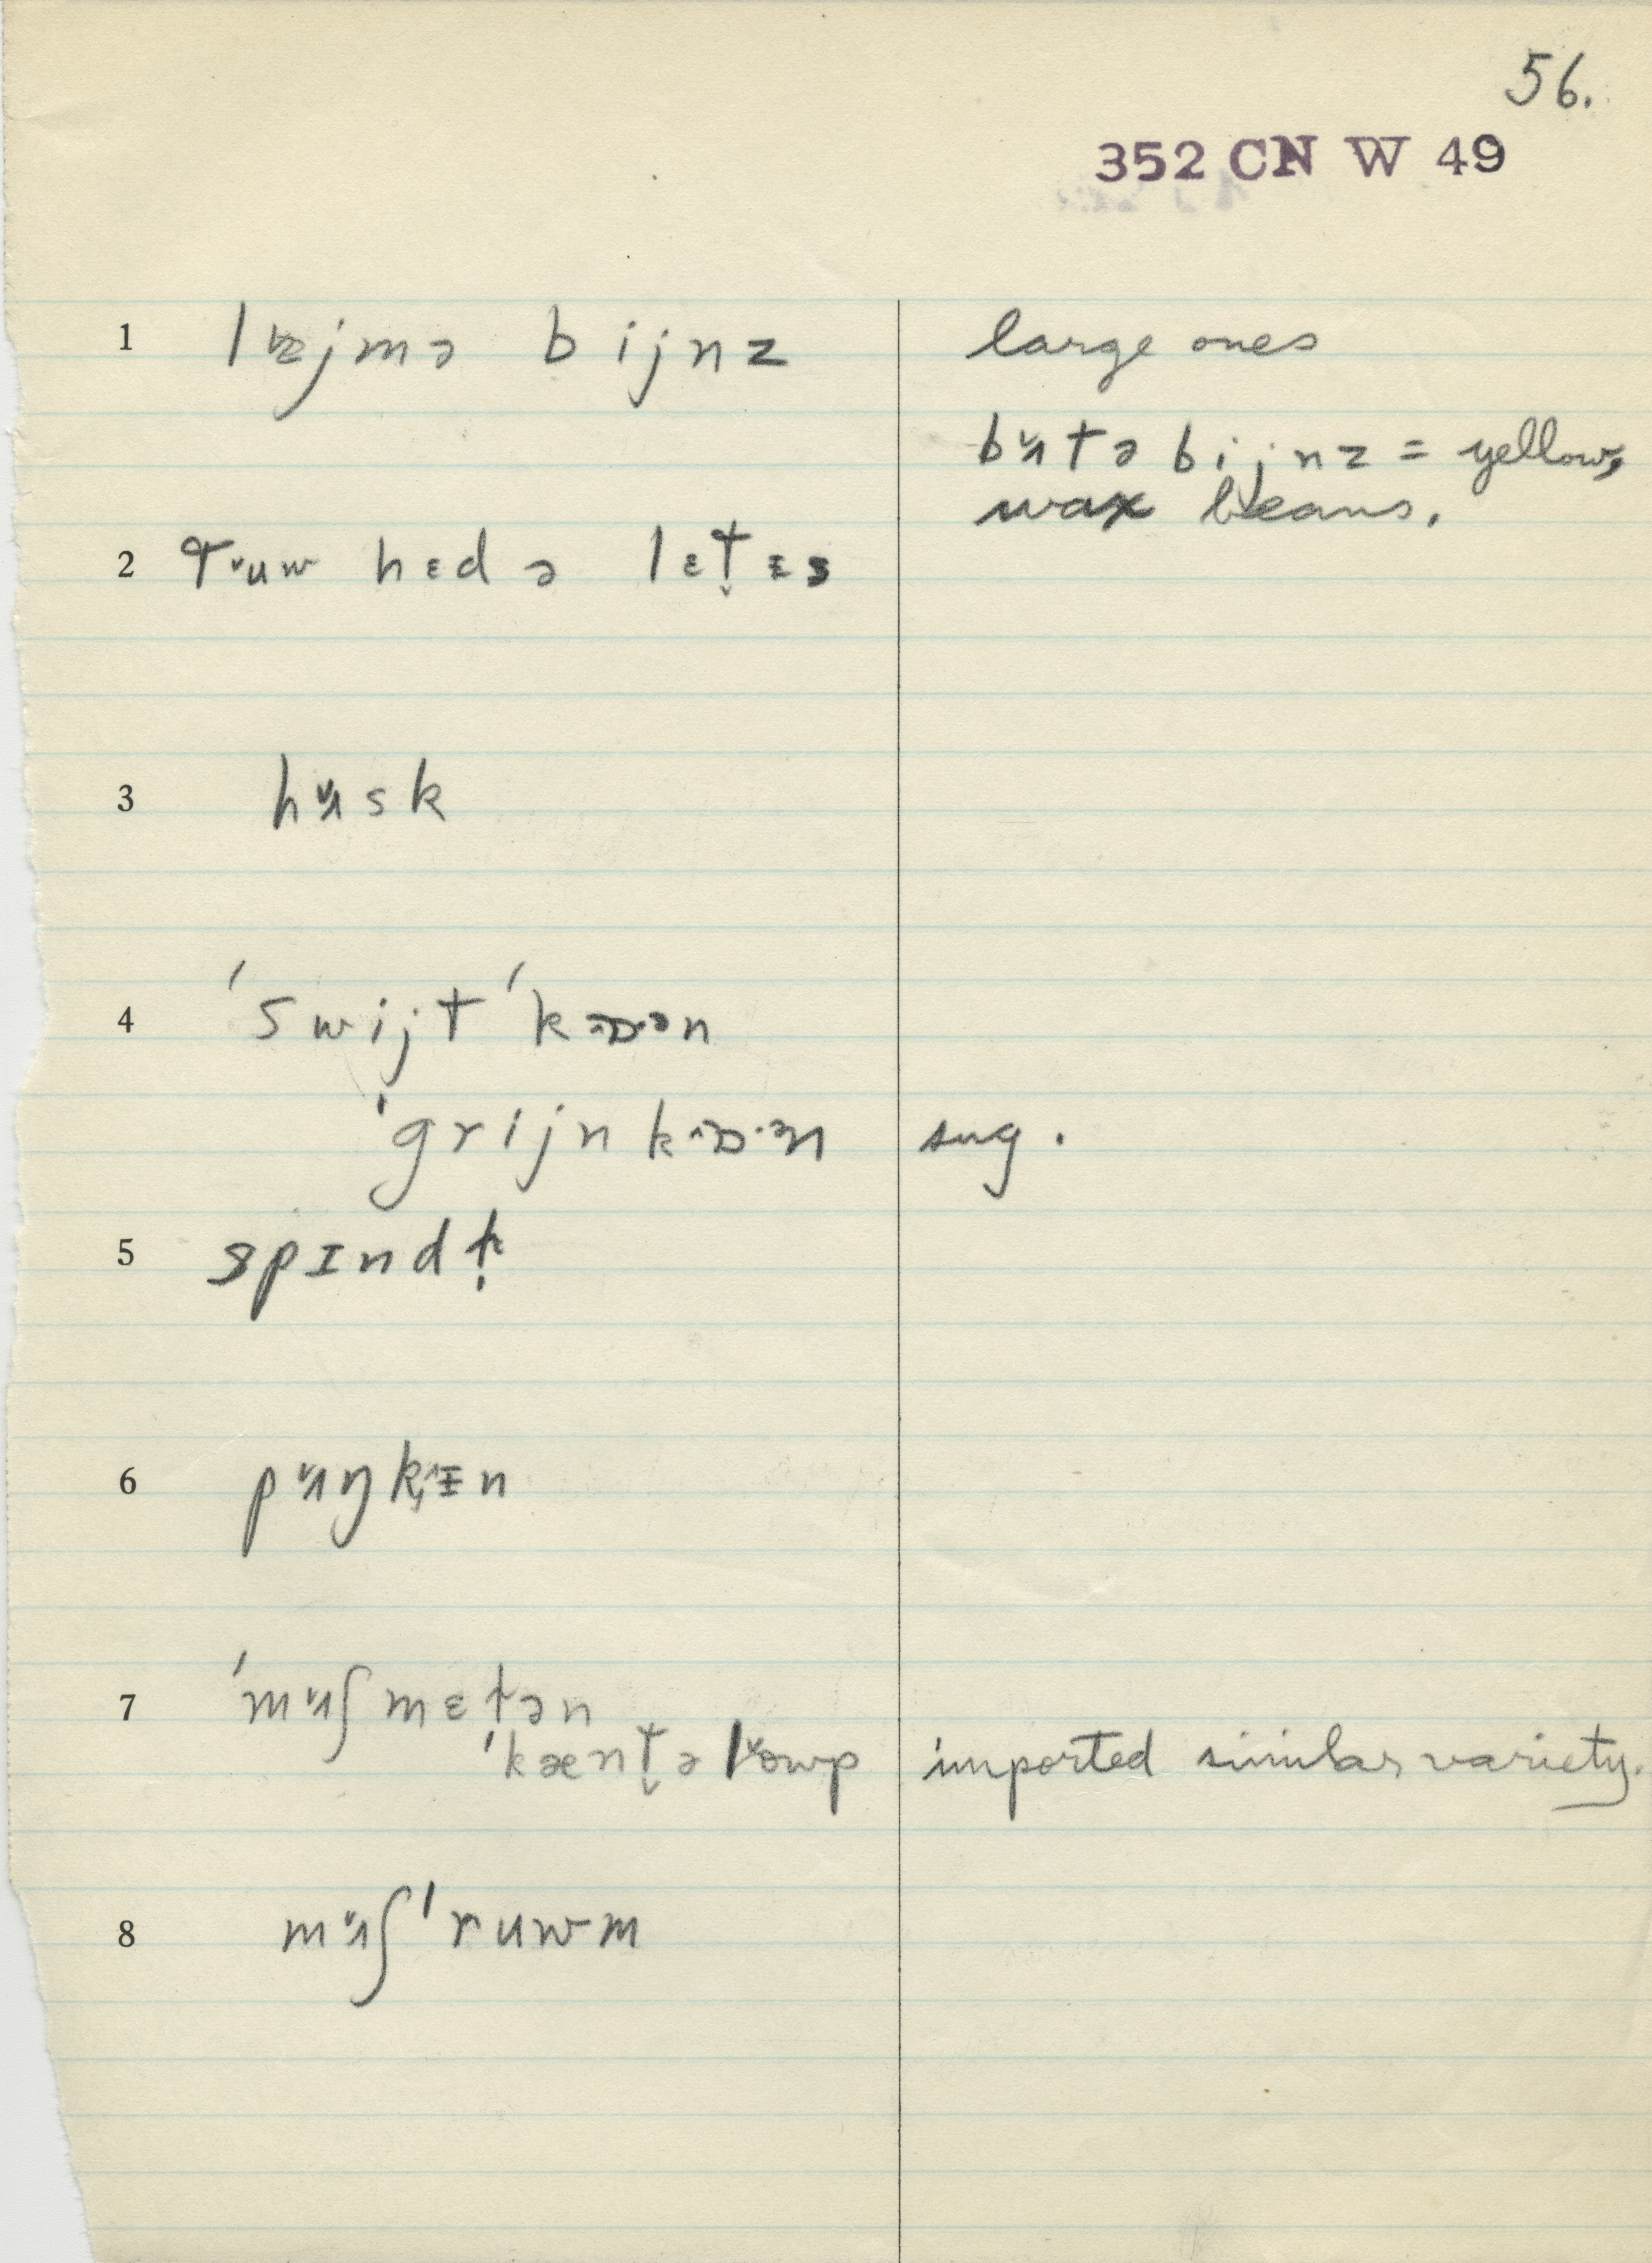 56.
352 CN W 49
1 lɐjmə bijnz large ones
bʌ̌tə bijnz = yellow,
wax beans.
2 tˇuw hɛd ə lɛt̬ɛs
3 hʌ̌sk
4 ˈswijtˈkɔɒ·ən
ˈgrijnkɔɒ·ən sug.
5
6 pʌ̌ŋkɪn
7 ˈmʌ̌ʃmɛɫən
ˈkænt̬əlˇowp imported similar variety.
8 mʌ̌ʃˈruwm